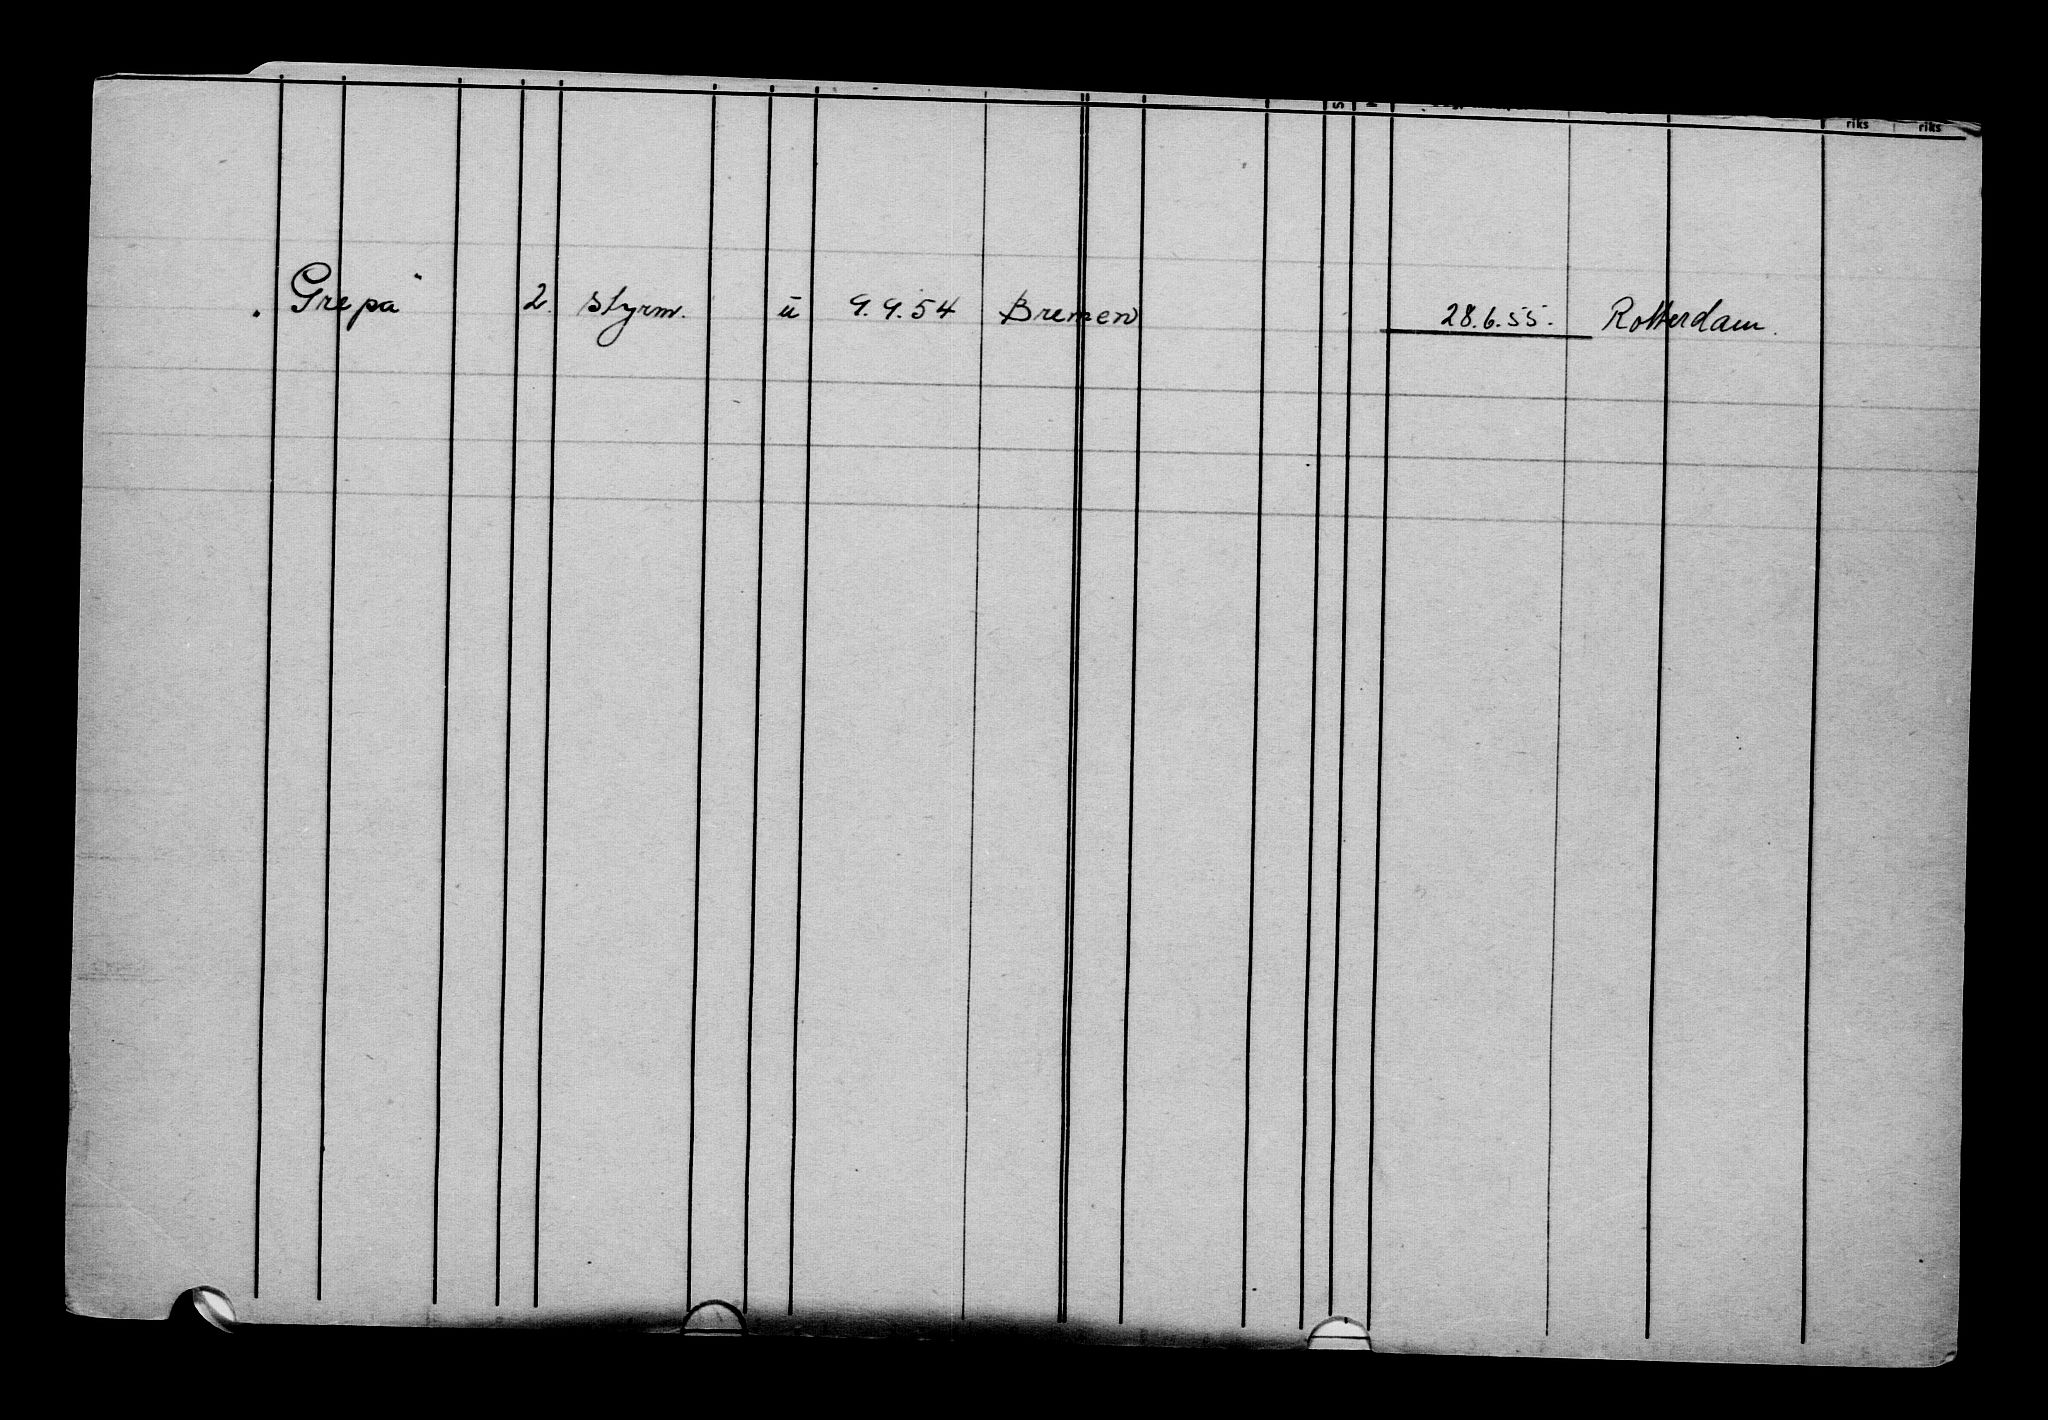 riks riks
. Grepa 2. styrm. ū 9.9.54 Bremen 28.6.55. Rotterdam.